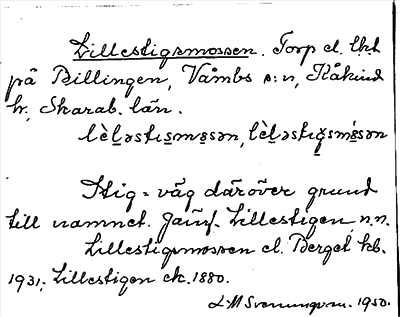 Lillestigsmossen. Torp el. lht
på Billingen, Våmbs s:n, Kåkinds
hr, Skarab. län.
lèləstɩsmɷsən, lèləstɩgsmɷ́sən
Stig = väg däröver grund
till namnet. Jämf. Lillestigen, n.n.
Lillestigsmossen el. Berget hb.
1931, Lillestigen ek. 1880.
L-M Svenungsson. 1950.